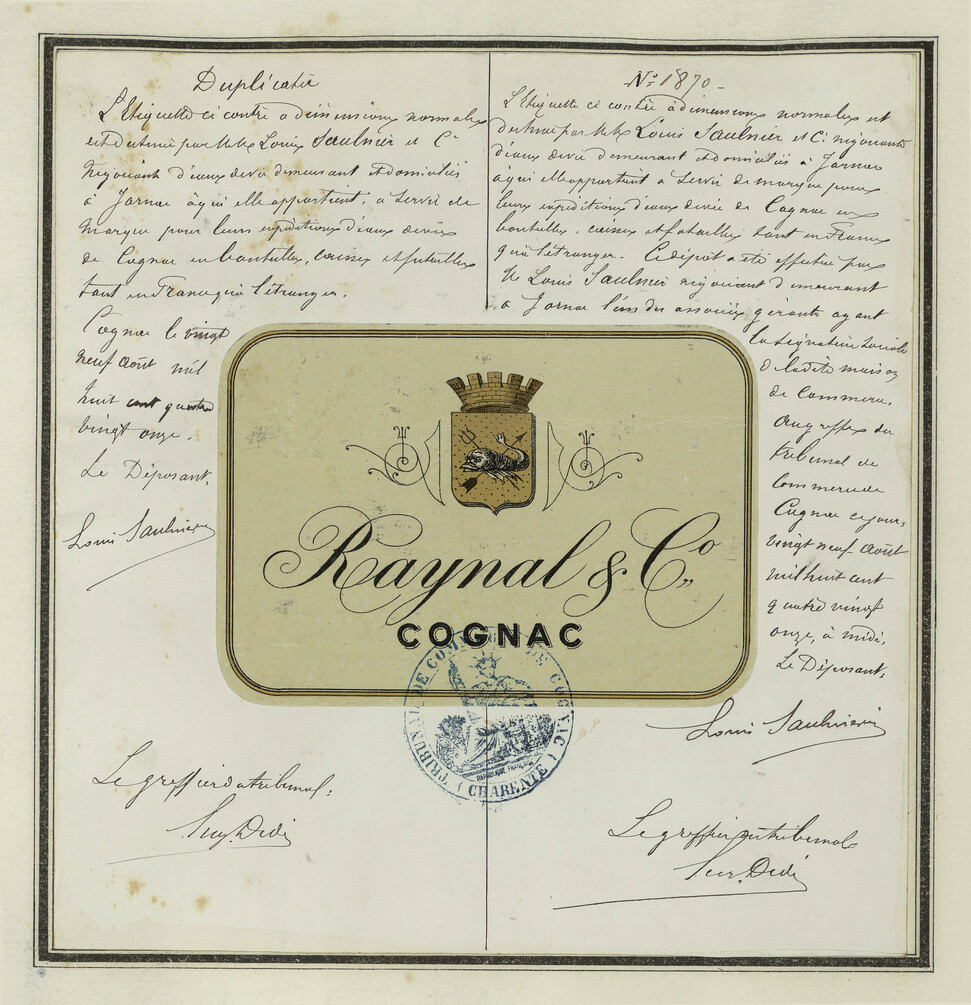 Duplicata
L'Etiquette ci contre a dimensions normales
est destinée par MMrs Louis Saulnier et Cie
Négociants d'eaux de vie demeurant et domiciliés
à Jarnac à qui elle appartient, a servir de
Marque pour leurs expéditions d'eaux de vie
de Cognac en bouteilles, caisses et futailles
tant en France qu'à l'étranger.
Cognac le vingt
neuf Août mil
huit cent quatre
vingt onze.
Le Déposant,
Louis Saulnier
Le greffier du tribunal:
No 1870
L'Etiquette ci contre à dimensions normales est
destinée par MMrs Louis Saulnier et Cie négociants
d'eaux de vie demeurant et domiciliés à Jarnac
à qui elle appartient à servir de marque pour
leurs expéditions d'eaux de vie de Cognac en
bouteilles, caisses et futailles tant en France
qu'à l'étranger. Ce dépôt a été effectué par
M. Louis Saulnier négociant demeurant
à Jarnac l'un des associés gérants ayant
la signature sociale
de ladite maison
de Commerce.
Au greffe du
tribunal de
Commerce de
Cognac ce jour:
vingt neuf Août
mil huit cent
quatre vingt
onze, à midi,
Le Déposant,
Louis Saulnier
Le greffier du tribunal
Raynal & Co
COGNAC
TRIBUNAL DE COMMERCE DE COGNAC
REPUBLIQUE FRANÇAISE
(CHARENTE)